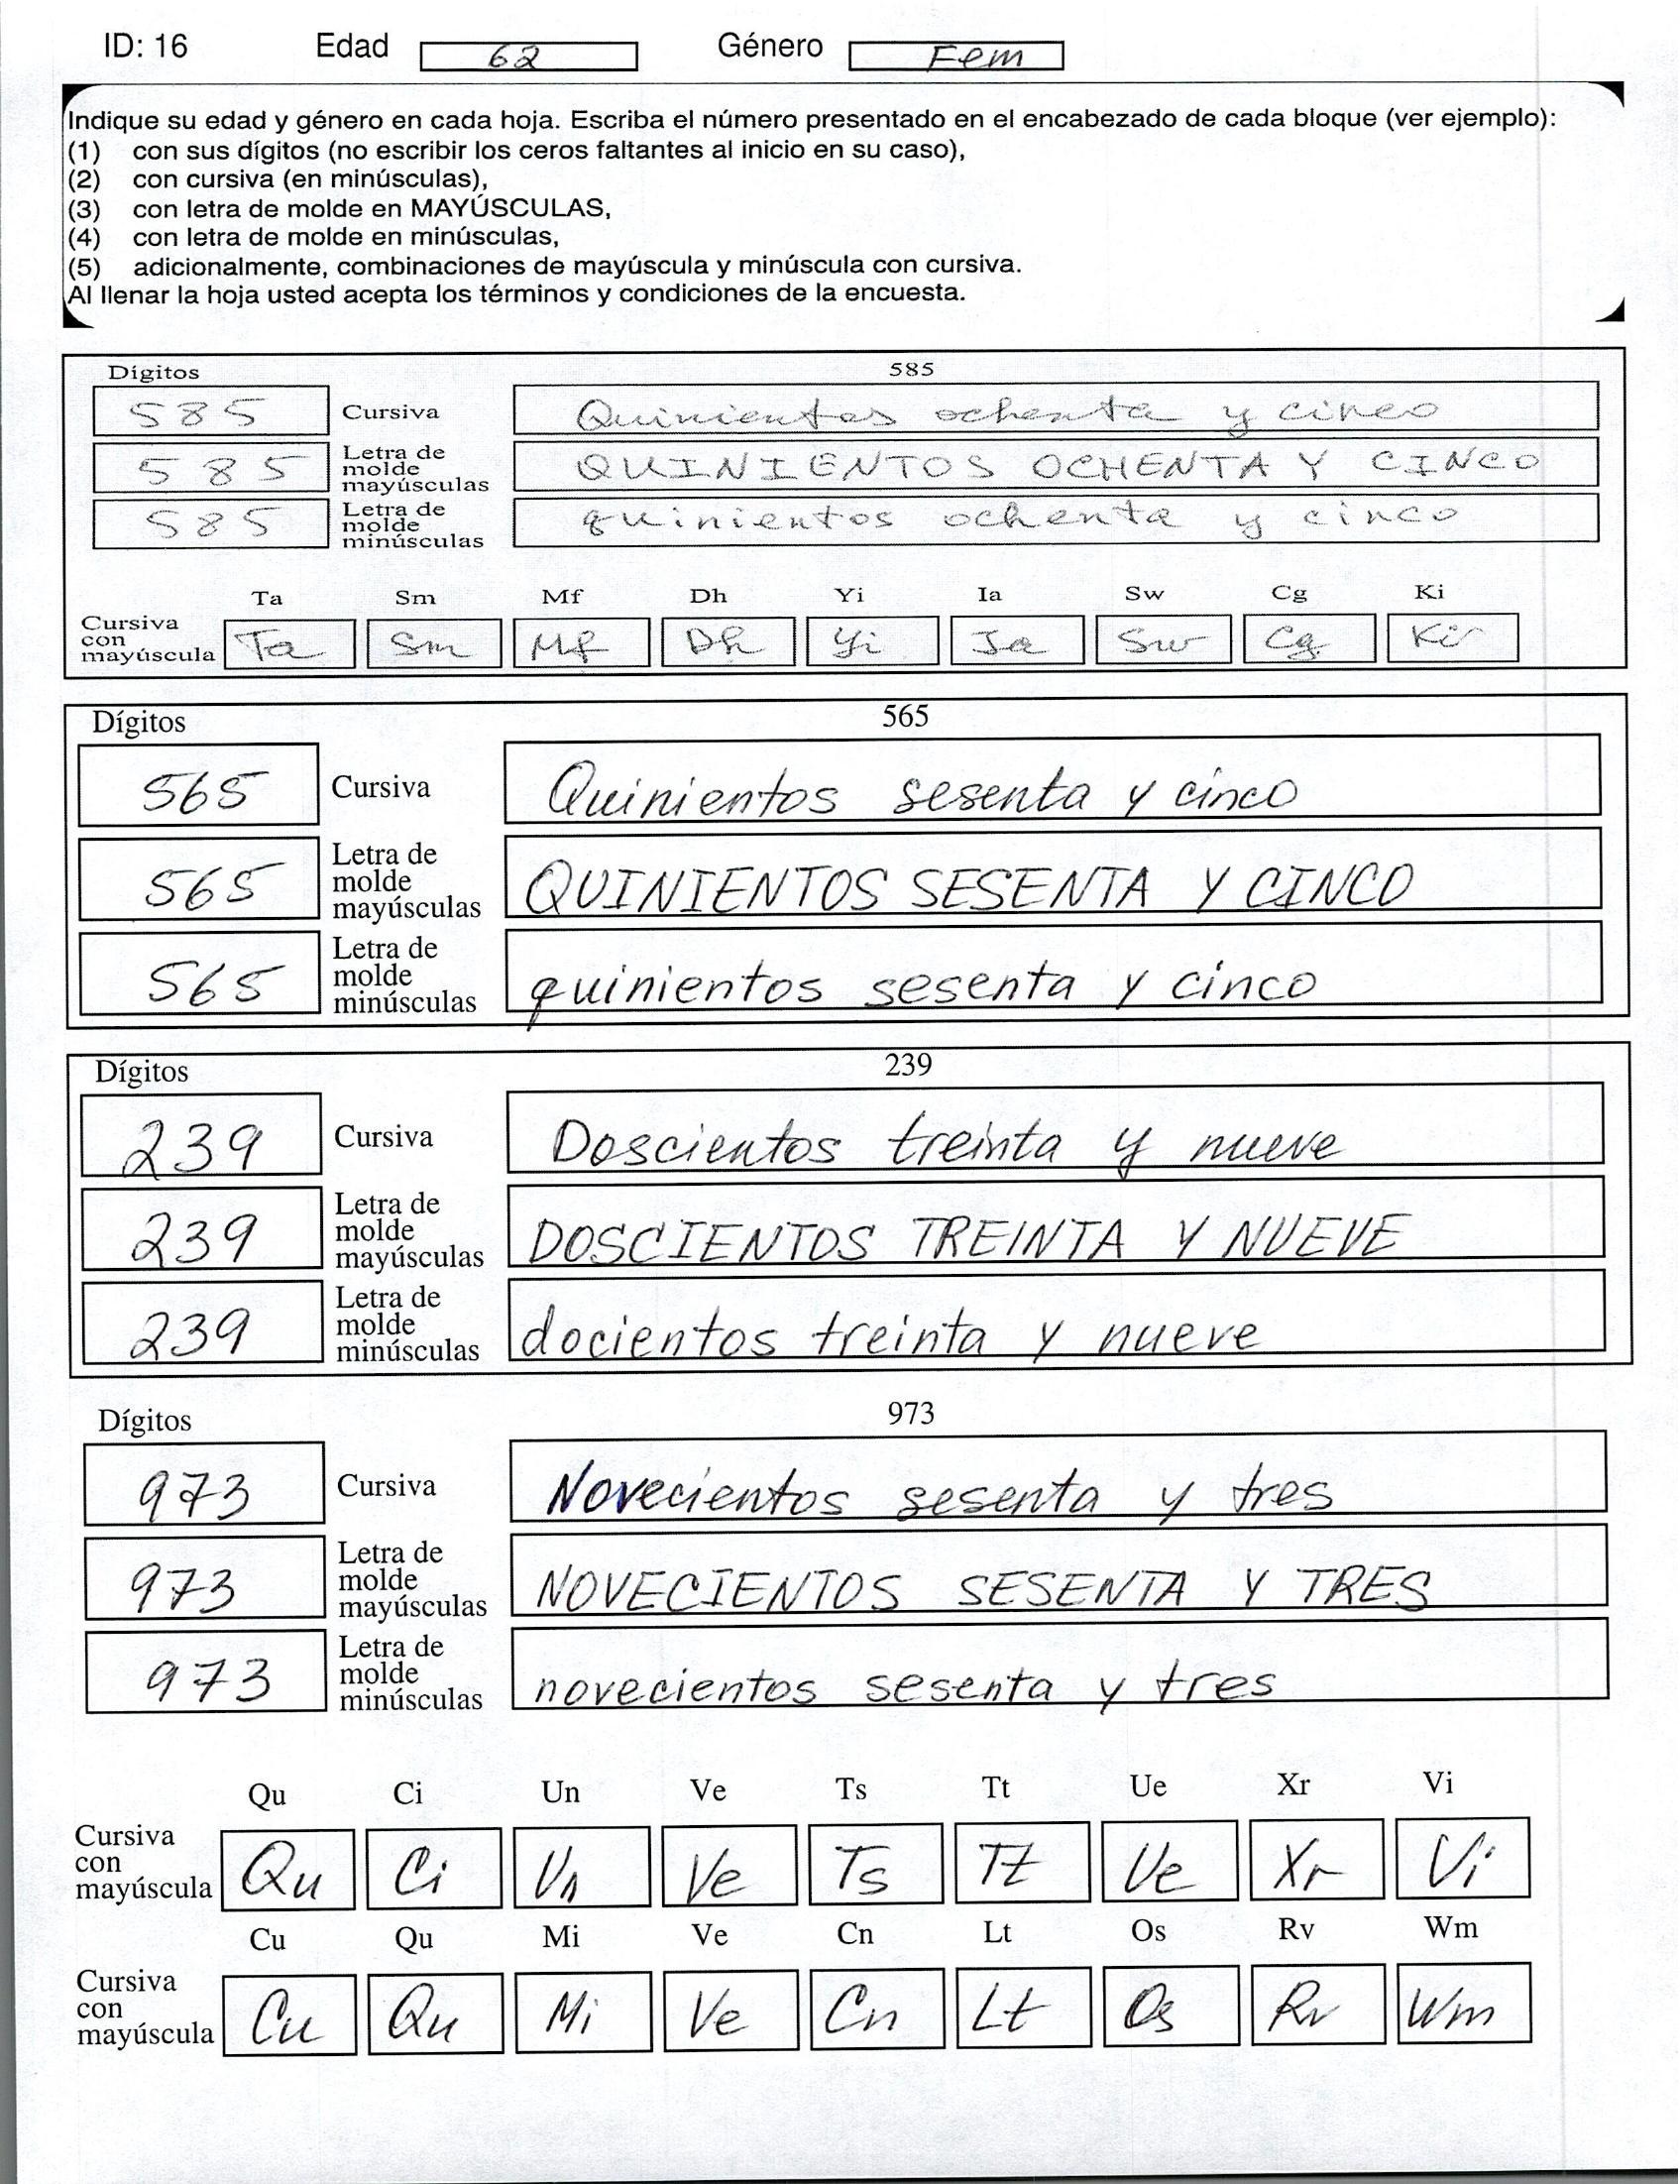 ID: 16 Edad 62 Género Fem
Indique su edad y género en cada hoja. Escriba el número presentado en el encabezado de cada bloque (ver ejemplo):
(1) con sus dígitos (no escribir los ceros faltantes al inicio en su caso),
(2) con cursiva (en minúsculas),
(3) con letra de molde en MAYÚSCULAS,
(4) con letra de molde en minúsculas,
(5) adicionalmente, combinaciones de mayúscula y minúscula con cursiva.
Al llenar la hoja usted acepta los términos y condiciones de la encuesta.
Dígitos 585
585 Cursiva Quinientos ochenta y cinco
585 Letra de molde mayúsculas QUINIENTOS OCHENTA Y CINCO
585 Letra de molde minúsculas quinientos ochenta y cinco
Ta Sm Mf Dh Yi Ia Sw Cg Ki
Cursiva con mayúscula Ta Sm Mf Dh Yi Ia Sw Cg Ki
Dígitos 565
565 Cursiva Quinientos sesenta y cinco
565 Letra de molde mayúsculas QUINIENTOS SESENTA Y CINCO
565 Letra de molde minúsculas quinientos sesenta y cinco
Dígitos 239
239 Cursiva Doscientos treinta y nueve
239 Letra de molde mayúsculas DOSCIENTOS TREINTA Y NUEVE
239 Letra de molde minúsculas docientos treinta y nueve
Dígitos 973
973 Cursiva Novecientos sesenta y tres
973 Letra de molde mayúsculas NOVECIENTOS SESENTA Y TRES
973 Letra de molde minúsculas novecientos sesenta y tres
Qu Ci Un Ve Ts Tt Ue Xr Vi
Cursiva con mayúscula Qu Ci Un Ve Ts Tt Ue Xr Vi
Cu Qu Mi Ve Cn Lt Os Rv Wm
Cursiva con mayúscula Cu Qu Mi Ve Cn Lt Os Rv Wm